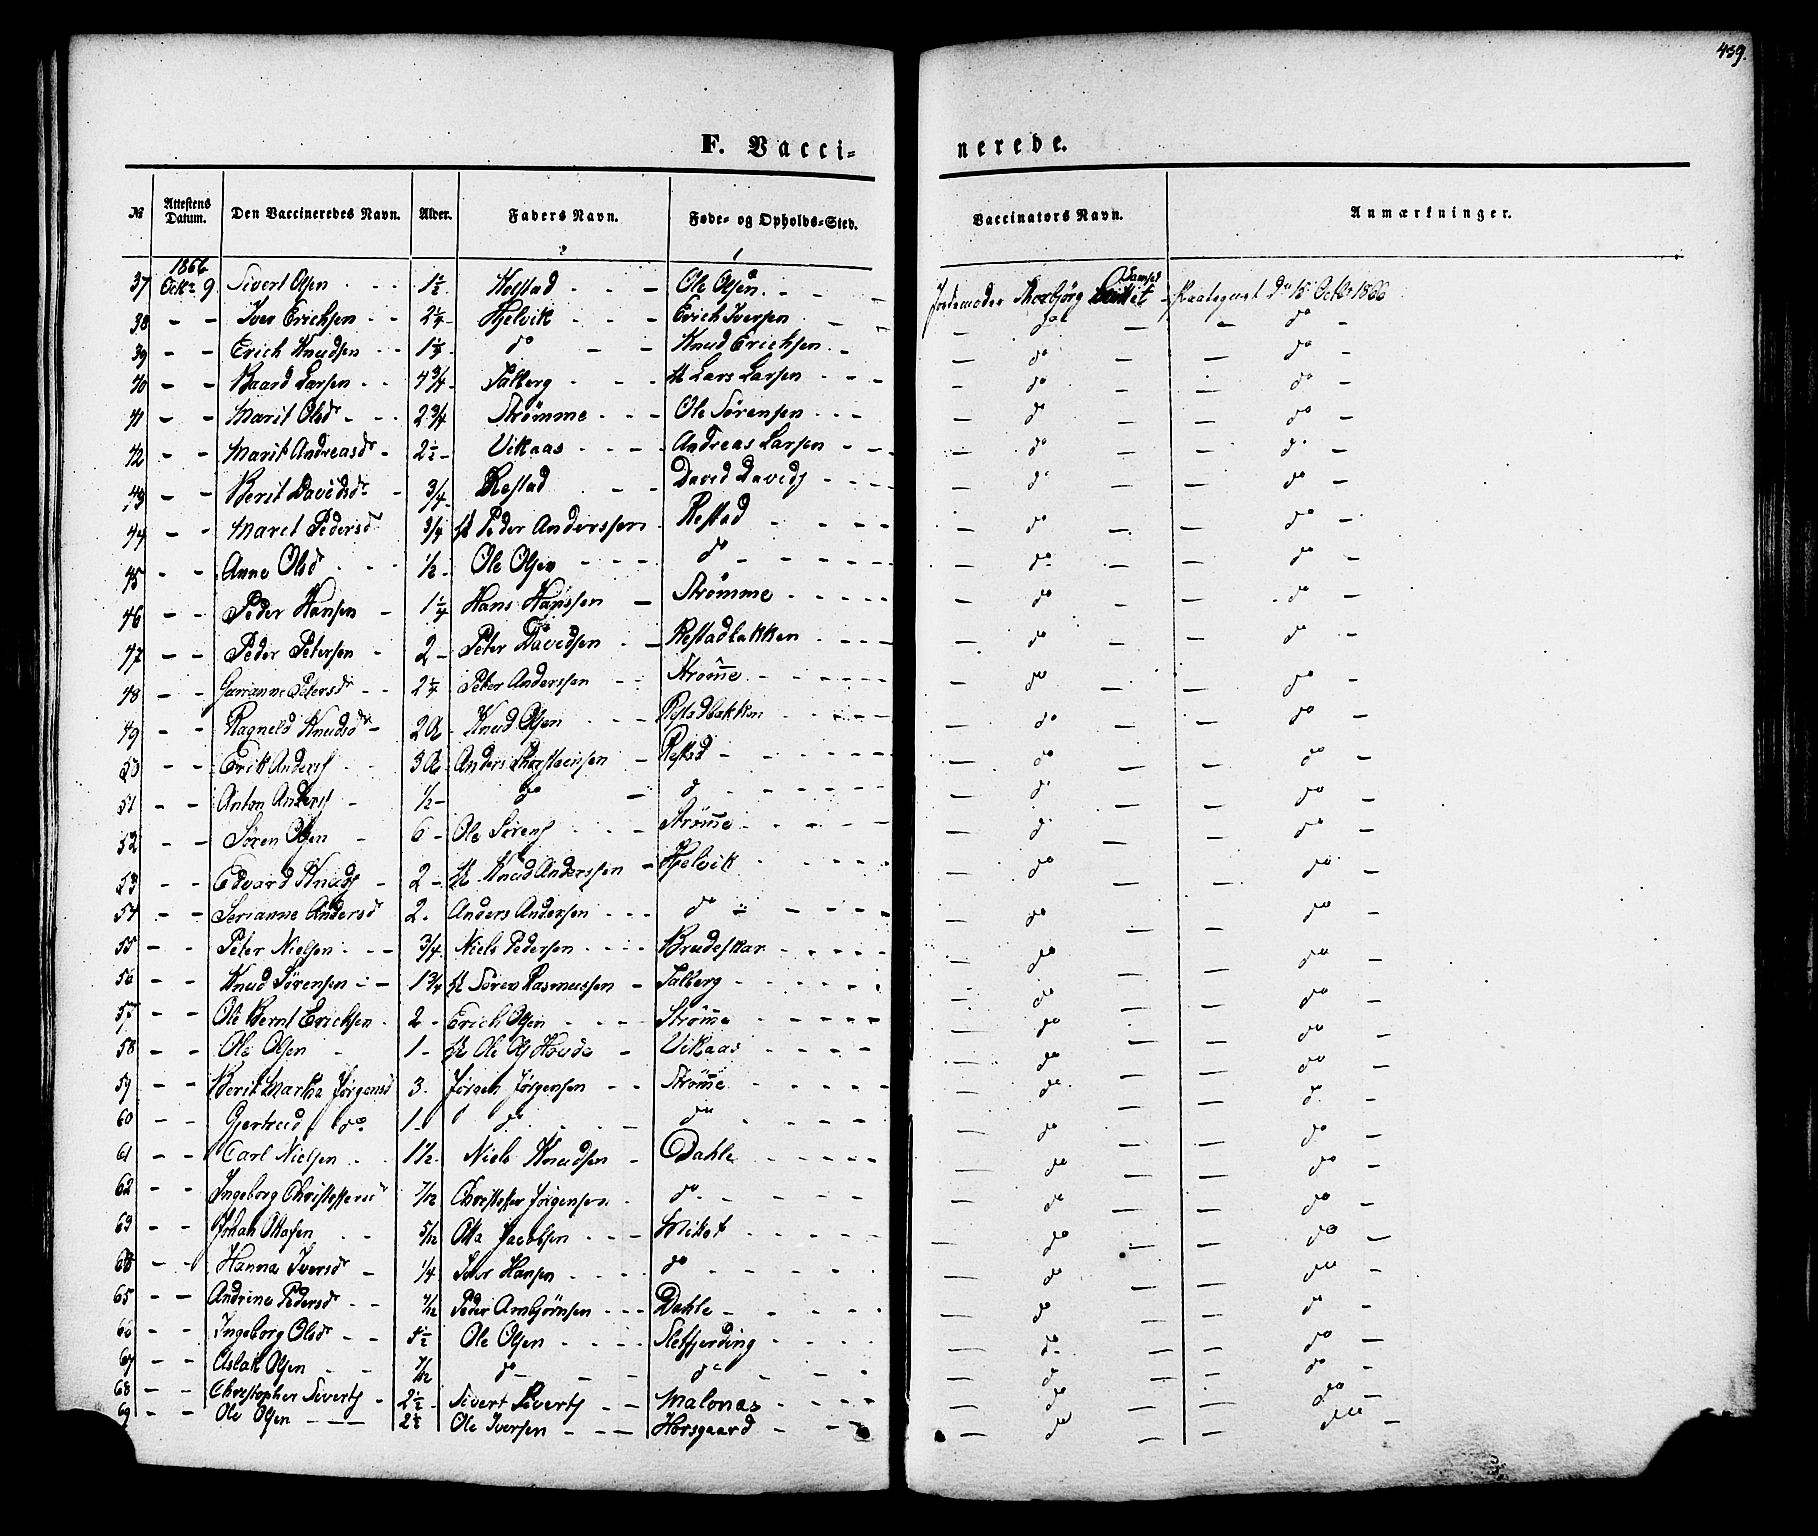 439.
F. Vacci- nerede.
№ Attestens Datum. Den Vaccineredes Navn. Alder. Faders Navn. Føde- og Opholds-Sted. Vaccinators Navn. Anmærkninger.
1866
37 Octr 9. Sivert Olsen - - - 1½ Holstad - - - Ole Olsen - - - Jordemoder Thorbjørg
38 - - Iver Erichsen - - 2¼ Hjelvik - - - Erich Iversen - - do - - do -
39 - - Erich Knudsen - - do - - Knud Erichsen - - do - - do -
40 - - Baard Larsen - - 4¾ Talberg - - - Lars Larsen - - - do - - do -
41 - - Marit Olsdr - - 2¾ Strømme - - - Ole Sørensen - - - do - - do -
42 - - Marit Andreasdr - 2½ - Vikaas - - - Andreas Larsen - - do - - do -
43 - - Berit Davidsdr - ¾ - Restad - - David Davids - - - do - - do -
44 - - Maret Pedersd ¾ Peder Anderssen Restad - - - - do - - do -
45 - - Anne Olsd - - - ½ - Ole Olsen - - - do - - - - do - - do -
46 - - Peder Hansen - 1¼ Hans Hanssen - Strømme - - - - do - - do -
47 - - Peder Petersen - 2 - Peter Davidsen - - Restadbakken - - - do - - do -
48 - - Petersdr - - 2¼ Peter Anderssen - - Strom̄e - - - - do - - do -
49 - - Ragneld Knudsdr - 2 A - Knud Olsen - - - Restadbakken - - - do - - do -
50 - - Erik Anders - - 3 A Anders Thorsteinsen - Restad - - - - do - - do -
51 - - Anton Anders - ½ - do - d - - - - do - - do -
52 - - Søren Olsen - 6 - Ole Sørens - - - Strøm̄e - - - - do - - do -
53 - - Edvard Knuds - 2 - Knud Anderssen - Hjelvik - - - - do - - do -
54 - - Serianne Andersd 2. Anders Andersen - - - do - - - - do - - do -
55 - - Peter Nielsen - - - ¾ - Niels Pedersen - - - Brudeskar - - - - do - - do -
56 - - Knud Sørensen - - 1¾ Søren Rasmussen - Talberg - - - - do - - do -
57 - - Ole Bernt Ericksen - 2 - Erich Olsen - - - Strøm̄e - - - - do - - do -
58 - - Ole Olsen - 1 - Ole Ols - Vikaas - - - - do - - do -
59 - - Berit Martha Jørgensd 3. Jørgen Jørgensen - - Strøm̄e - - - - do - - do -
60 - - Gjertrud do 1 - do - - do - - - - do - - do -
61 - - Carl Nielsen - - 1½ - Niels Knudsen - Dahle - - - - do - - do -
62 - - Ingeborg Christoffersd 7/12 Christoffer Jørgensen - do - - - - do - - do -
63 - - Johan - - 5/12 Jacobsen - - - - - - - do - - do -
64 - - Hanna Iversdr - ¼ Iver Hansen - - - do - - - - do - - do -
65 - - Andrine Pedersdr - - 7/12 Peder Arnbjørnsen - - - Dahle - - - - do - - do -
66 - - Ingeborg Olsdr - - Ole Olsen - - - Sletfjerding - - - do - - do -
67 - - Aslak Olsen - - 7/12 do - - - do - - - do - - do -
68 - - Christopher Siverts - 2½ - Sivert Siverts - - Malonæs - - - - do - - do -
69 - - Ole Olsen - - - 2½ Ole Iversen - - - Horsgaard - - do - - do -